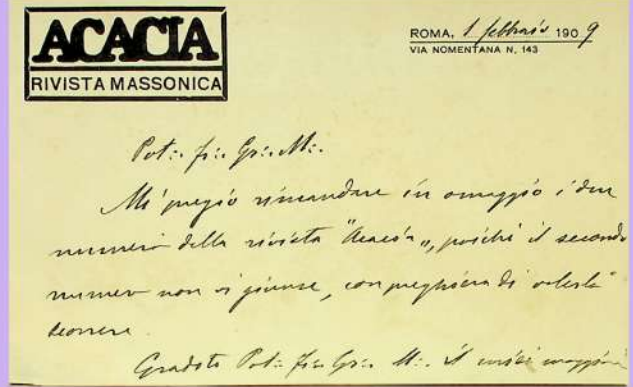 ACACIA
RIVISTA MASSONICA
ROMA, 1 febbraio 1909
VIA NOMENTANA N. 143
Pot∴ fr∴ Gr∴ M∴
Mi pregio rimandare in omaggio i due
numeri della rivista "Acacia", poichè il secondo
numero non vi giunse, con preghiera di
scorrere.
Gradite Pot∴ fr∴ Gr∴ M∴ il